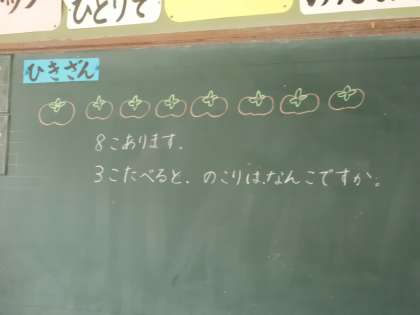 ひとりで
ひきざん
8こあります.
3こたべると、のこりはなんこですか。